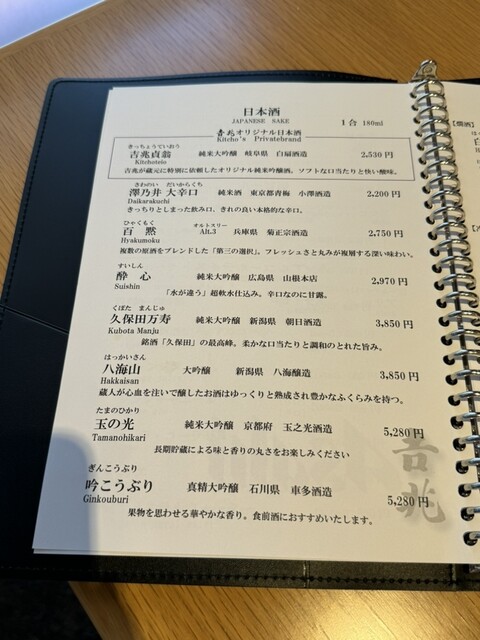 日本酒
JAPANESE SAKE
1合 180ml
吉兆オリジナル日本酒
Kitcho's Privatebrand
きっちょうていおう
吉兆貞翁 純米大吟醸 岐阜県 白扇酒造 2,530円
Kitchoteio
吉兆が蔵元に特別に依頼したオリジナル純米吟醸酒。ソフトな口当たりと快い酸味。
さわのい だいからくち
澤乃井 大辛口 純米酒 東京都青梅 小澤酒造 2,200円
Daikarakuchi
きっちりとしまった飲み口、きれの良い本格的な辛口。
ひゃくもく オルトスリー
百黙 Alt.3 兵庫県 菊正宗酒造 2,750円
Hyakumoku
複数の原酒をブレンドした「第三の選択」。フレッシュさと丸みが複層する深い味わい。
すいしん
酔心 純米大吟醸 広島県 山根本店 2,970円
Suishin
「水が違う」超軟水仕込み。辛口なのに甘露。
くぼた まんじゅ
久保田万寿 純米大吟醸 新潟県 朝日酒造 3,850円
Kubota Manju
銘酒「久保田」の最高峰。柔かな口当たりと調和のとれた旨み。
はっかいさん
八海山 大吟醸 新潟県 八海醸造 3,850円
Hakkaisan
蔵人が心血を注いで醸したお酒はゆっくりと熟成され豊かなふくらみを持つ。
たまのひかり
玉の光 純米大吟醸 京都府 玉之光酒造 5,280円
Tamanohikari
長期貯蔵による味と香りの丸さをお楽しみください
ぎんこうぶり
吟こうぶり 真精大吟醸 石川県 車多酒造 5,280円
Ginkouburi
果物を思わせる華やかな香り。食前酒におすすめいたします。
吉兆